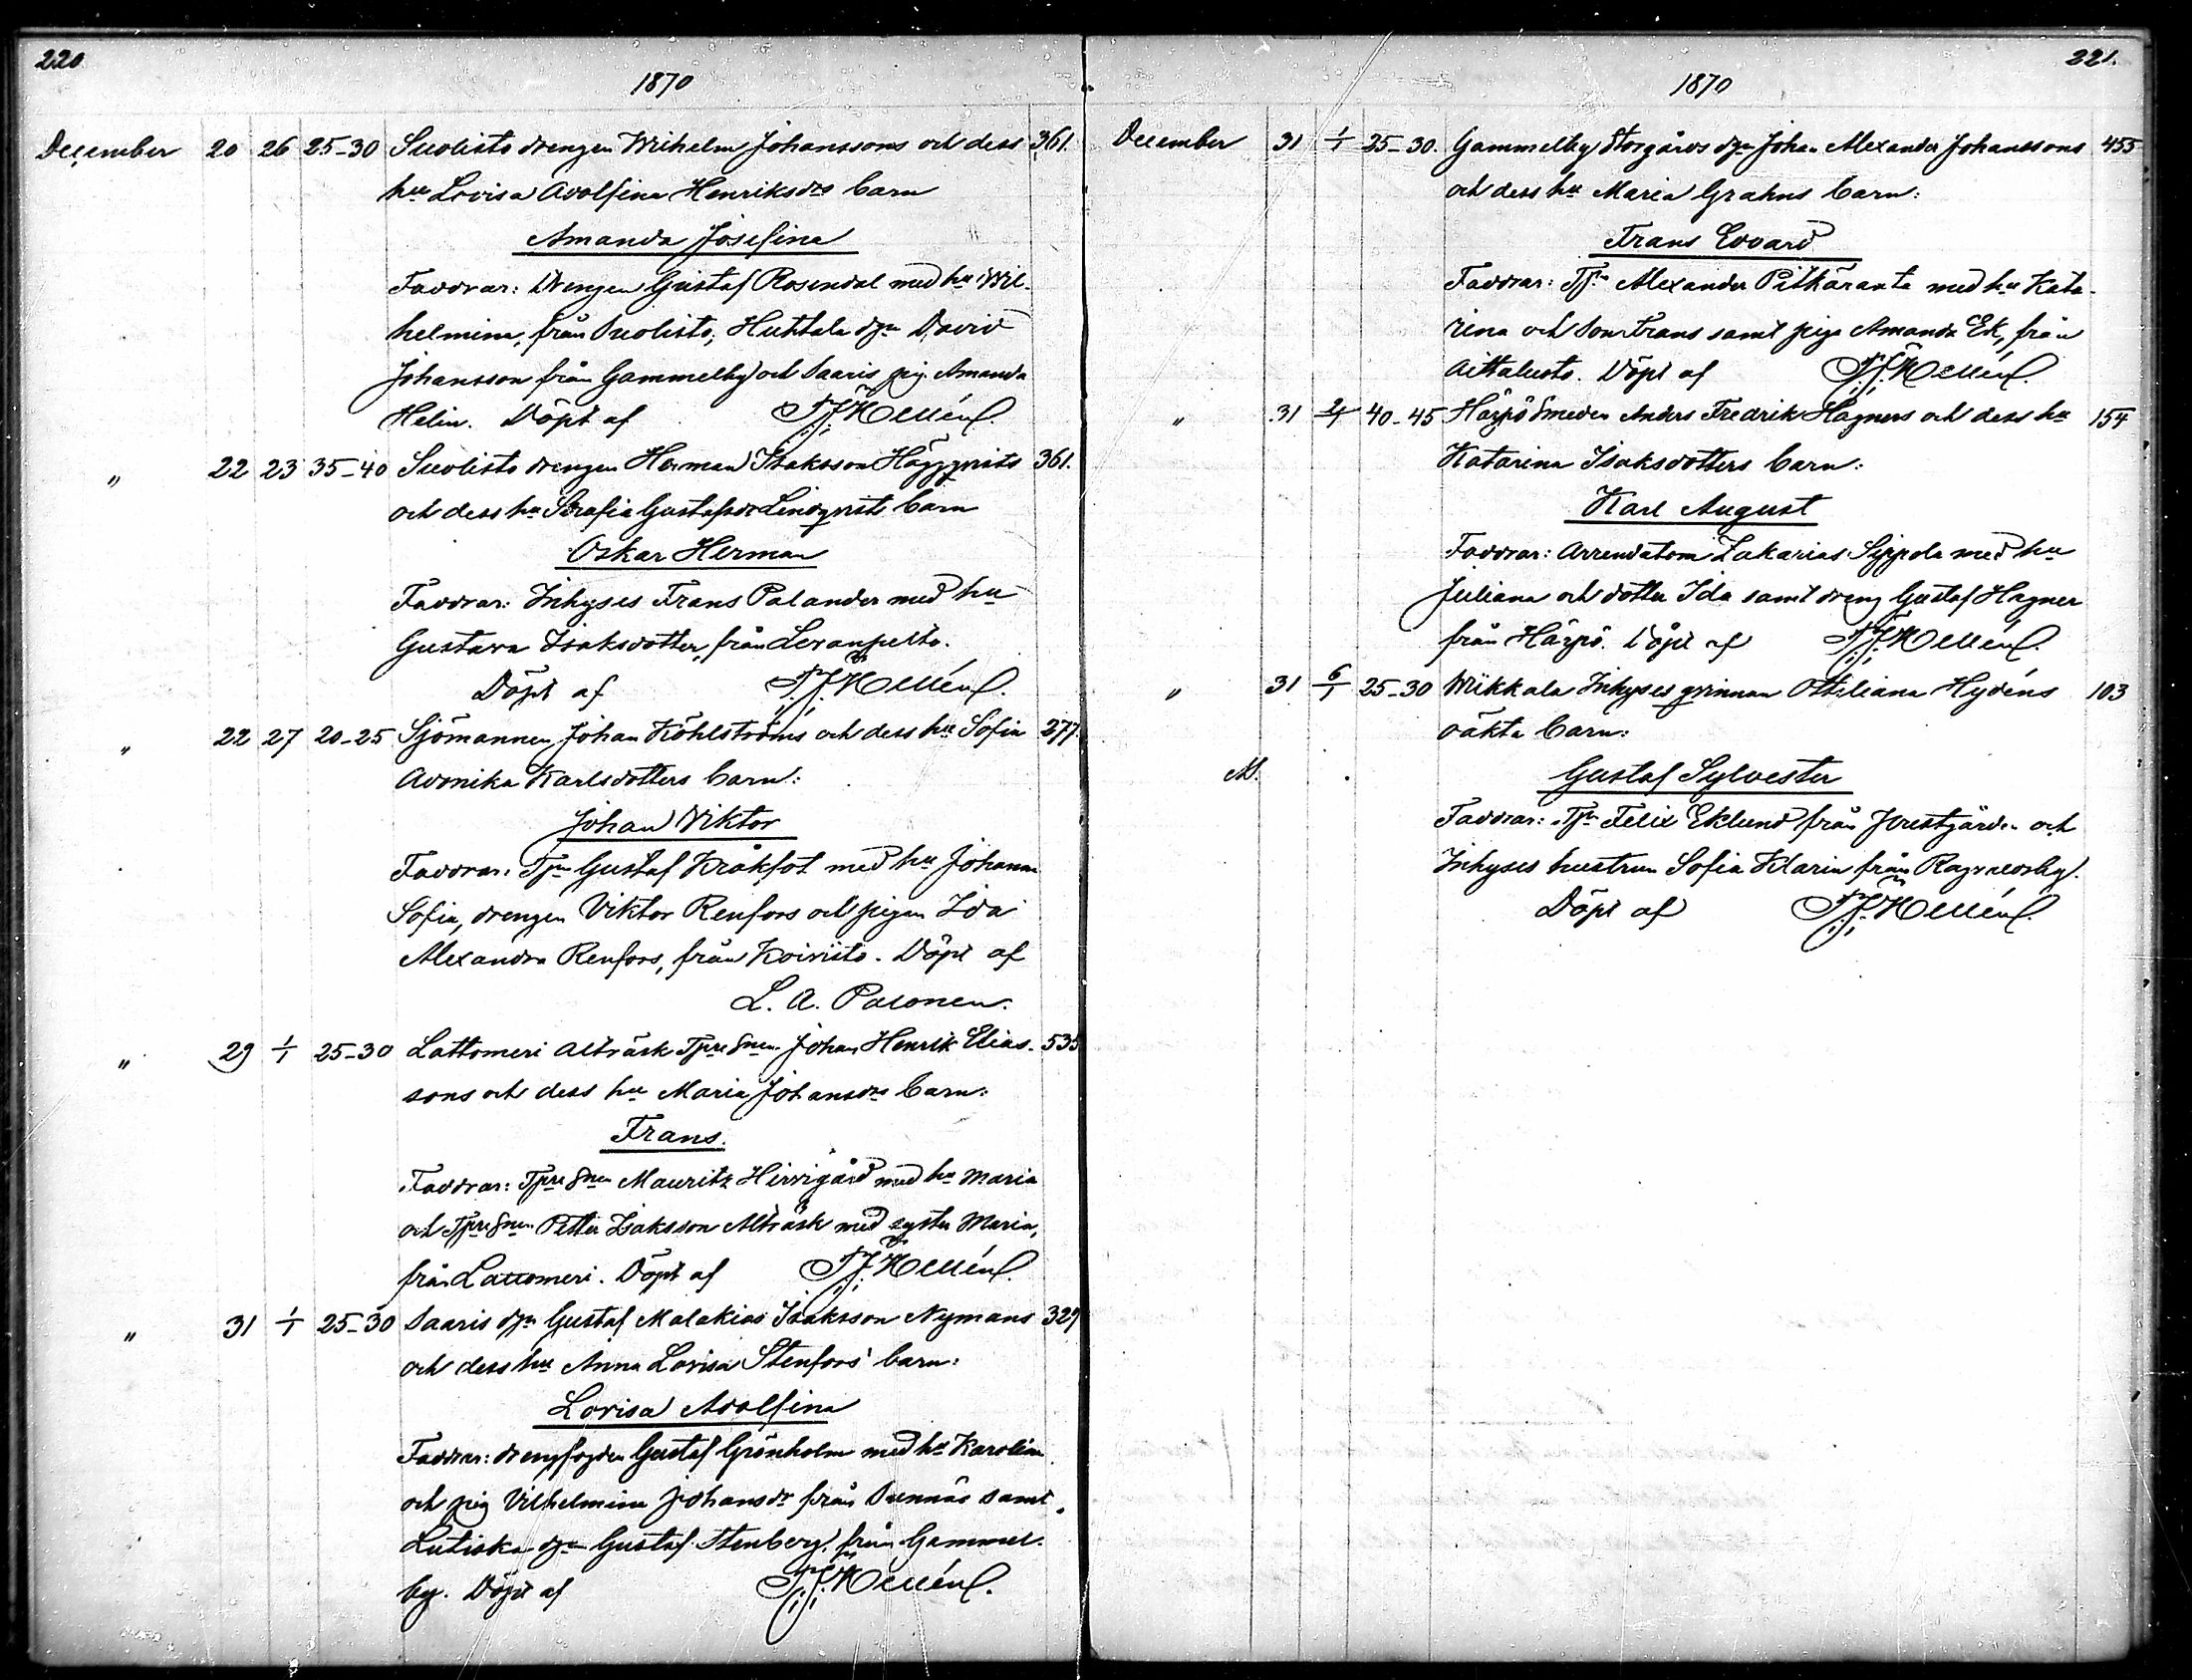 220
1870
December 20 26 25-30 Suolisto drengen Wilhelm Johanssons och dess 361.
hu Lovisa Adolfina Henriksdrs barn
Amanda Josefina
Faddrar: Drengen Gustaf Rosendal med hu Wil-
helmina, från Suolisto, Huttala dgn David
Johansson från Gammelby och Saaris pig. Amanda
Helin. Döpt af Hellén.
" 22 23 35-40 Suolisto drengen Herman Isaksson Häggqvists 361.
och dess hu Serafia Gustafsdr Lindqvists barn
Oskar Herman
Faddrar: Inhyses Frans Palander med hu
Gustava Isaksdotter, från Levanpelto.
Döpt af Hellén.
" 22 27 20-25 Sjömannen Johan Köhlströms och dess hu Sofia 277.
Avonika Karlsdotters barn:
Johan Viktor
Faddrar: Tjn Gustaf Kråkfot med hu Johanna
Sofia, drengen Viktor Renfors och pigan Ida
Alexandra Renfors, från Koivisto. Döpt af
L. A. Palonen.
" 29 1/1 25-30 Lattomeri Alträsk Tpre Snen Johan Henrik Elias- 535
sons och dess hu Maria Johansdrs barn:
Frans.
Faddrar: Tpre Snen Mauritz Hirvigård med hu Maria
och Tpre Snen Petter Isaksson Alträsk med syster Maria,
från Lattomeri. Döpt af Hellén.
" 31 1/1 25-30 Saaris dgn Gustaf Malakias Isaksson Nymans 329
och dess hu Anna Lovisa Stenfors' barn:
Lovisa Adolfina
Faddrar: drengfogden Gustaf Grönholm med hu Karolina
och pig Vilhelmina Johansdr från Sunnäs samt
Lutiska dgn Gustaf Stenberg från Gammel-
by. Döpt af Hellén.
221.
1870
December 31 1/1 25-30. Gammelby Storgårds dgn Johan Alexander Johanssons 455
och dess hu Maria Grahns barn:
Frans Edvard
Faddrar: Tpn Alexander Pitkäranta med hu Kata-
rina och Son Frans samt piga Amanda Ek, från
Aittaluoto. Döpt af Hellén.
" 31 2/1 40-45 Härpö Smeden Anders Fredrik Hagners och dess hu 154
Katarina Isaksdotters barn:
Karl August
Faddrar: Arrendatorn Zakarias Sippola med hu
Juliana och dotter Ida samt dreng Gustaf Hagner
från Härpö. Döpt af Hellén.
" 31 6/1 25-30 Wikkala Inhyses qvinnan Ottiliana Hydéns 103
oäkta barn:
Gustaf Sylvester
Faddrar: Tpn Felix Eklund från och
Inhyses hustrun Sofia Klarin från Ragvaldsby.
Döpt af Hellén.